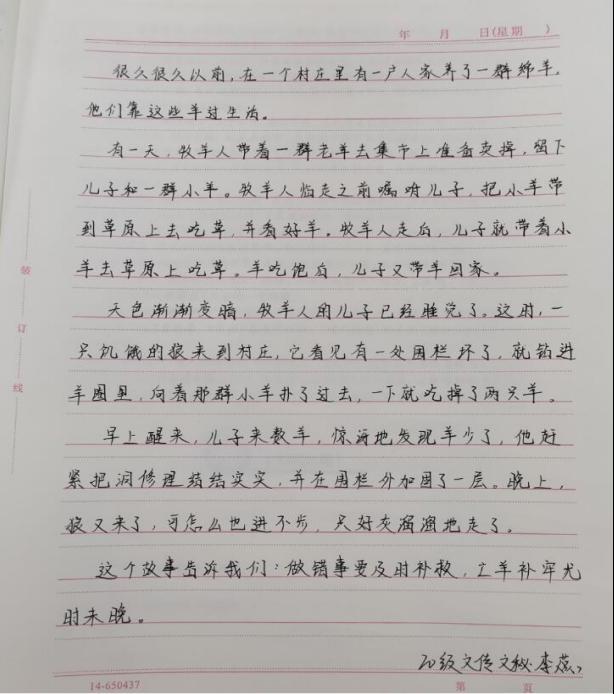 年 月 日(星期 )
很久很久以前,在一个村庄里有一户人家养了一群绵羊,
他们靠这些羊过生活。
有一天,牧羊人带着一群老羊去集市上准备卖掉,留下
儿子和一群小羊。牧羊人临走之前嘱咐儿子,把小羊带
到草原上去吃草,并看好羊。牧羊人走后,儿子就带着小
羊去草原上吃草。羊吃饱后,儿子又带羊回家。
天色渐渐变暗,牧羊人的儿子已经睡觉了。这时,一
只饥饿的狼来到村庄,它看见有一处围栏坏了,就钻进
羊圈里,向着那群小羊扑了过去,一下就吃掉了两只羊。
早上醒来,儿子来数羊,惊讶地发现羊少了,他赶
紧把洞修理结结实实,并在围栏外加围了一层。晚上,
狼又来了,可怎么也进不步,只好灰溜溜地走了。
这个故事告诉我们:做错事要及时补救,亡羊补牢尤
时未晚。
20级文传文秘李燕
装
订
线
14-650437
第 页